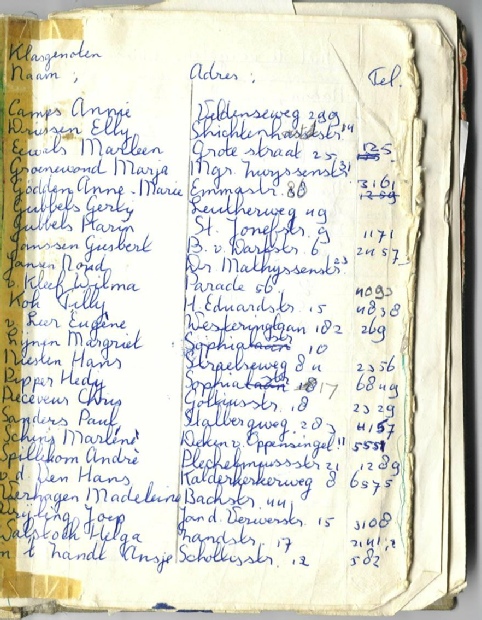 Klasgenoten
Naam : Adres : Tel.
Camps Annie Veldenseweg 299
Driessen Elly 14
Ewals Marleen Grote straat 25 125
Groenewoud Marja Mgr. Nuyssenstr 31
Godden Anne-Marie Emmastr. 80 3161
Gubbels Gerty Leutherweg 49 1289
Gubbels Marin St. Josefstr. 9 1171
Janssen Gusbert B. v. 6 2457
Jansen Ds. Mathyssenstr. 23
v. Kleef Wilma Parade 56 4093
Kok Tilly H. Eduardstr. 15 4838
v. Leer Eugène Weskeringlaan 182 269
Lynin Margriet Sophiastr 10
Niesten Hans Straelseweg 84 2356
Pupper Hedy Sophiastr 17 6849
Receveur Chris Goltziusstr. 18 2329
Sanders Paul Stalbergweg 283 4157
Schins Marlène Deken v. Oppensingel 11 5551
Spillekom André Plechelmusstr 21 1289
v. d. Ven Hans Kaldenkerkerweg 8 6575
Verhagen Madeleine Bachstr. 44
Joep Jan d. Verwerstr. 15 3108
Helga Zandstr. 17
in 't Zandt Ansje Scholtisstr. 12 582